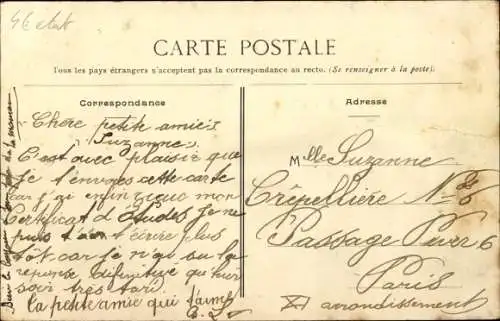 46 etat
CARTE POSTALE
Tous les pays étrangers n'acceptent pas la correspondance au recto. (Se renseigner à la poste).
Correspondance
Chère petite amie
Suzanne
C'est avec plaisir que
je t'envoyes cette carte
car j'ai enfin mon
Certificat d'études je ne
puis t'en t'écrire plus
tôt car je n'ai su la
réponse difinitive qu'hier
soir très tard.
la petite amie qui t'aime
Adresse
Mlle Suzanne
Crêpellière No
Passage Piver 6
Paris
XI arrondissement